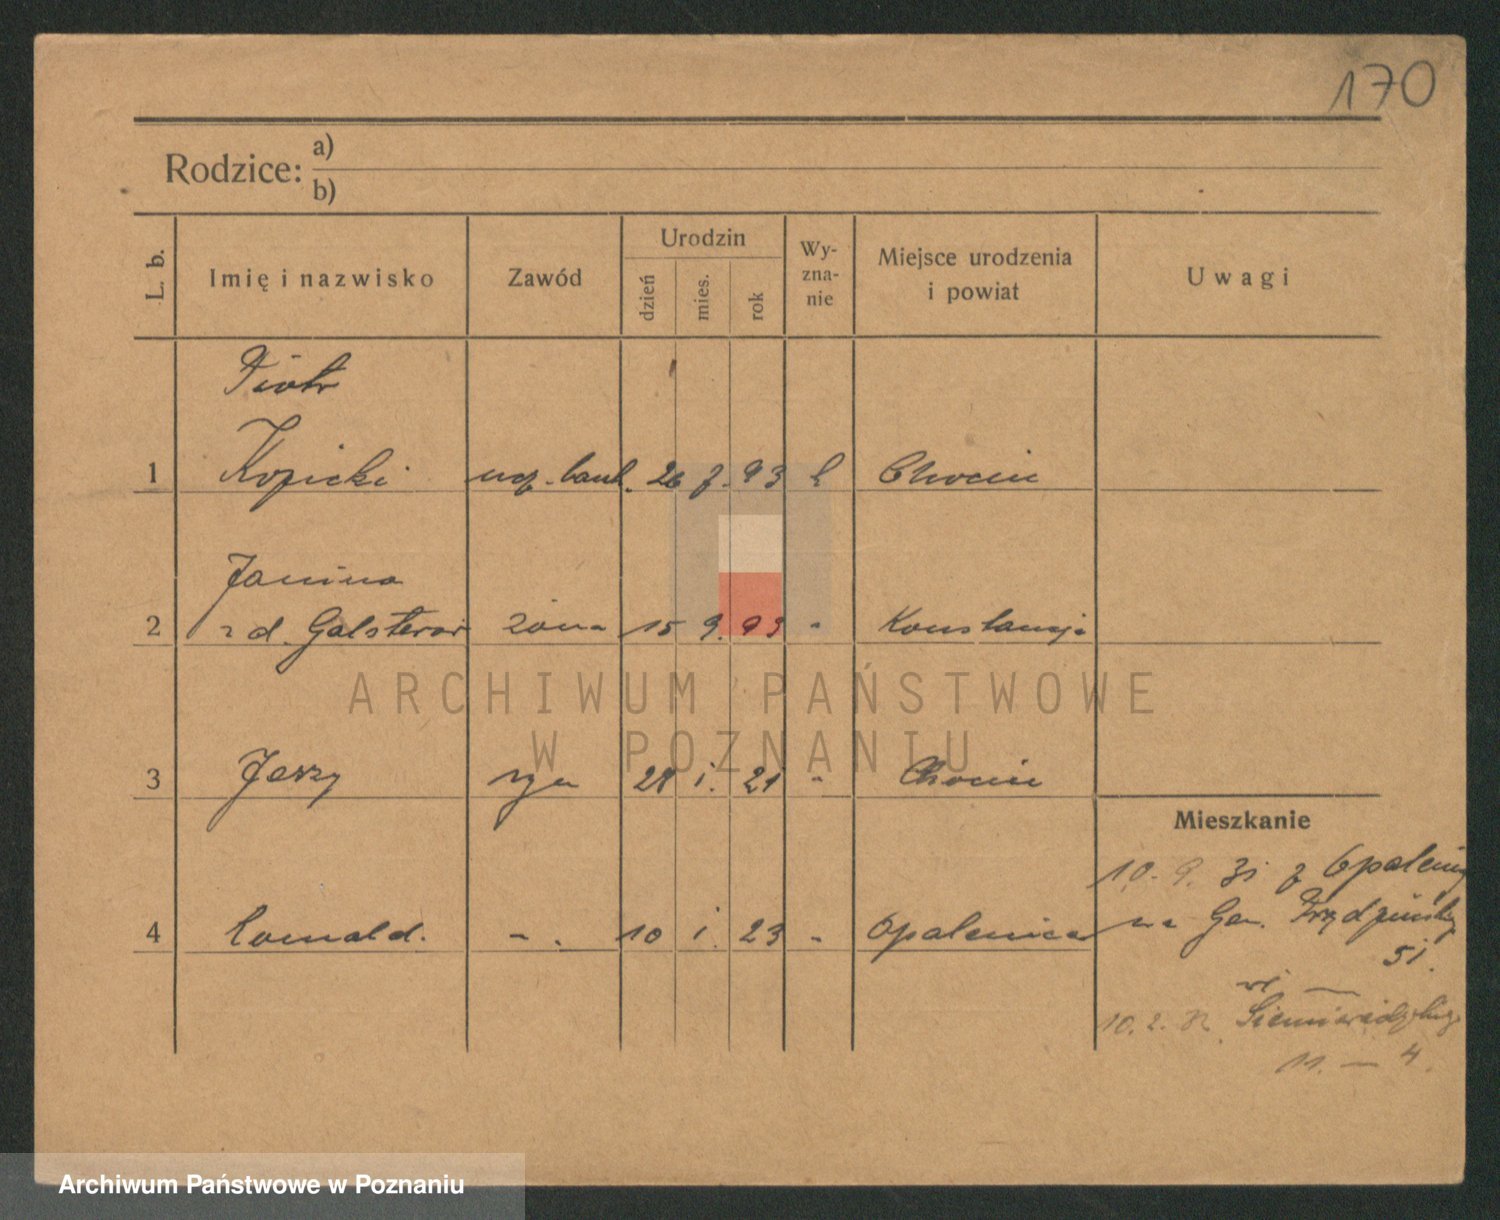 170
Rodzice: a)
b)
L. b. Imię i nazwisko Zawód Urodzin dzień mies. rok Wy-zna-nie Miejsce urodzenia i powiat Uwagi
Piotr
1 Kopicki urz. bank. 26 7. 93 k Chocin
Janina
2 z d. Galsterów żona 15 9. 93 " Konstancja
3 Jerzy syn 28 i. 21 " Chocin
Mieszkanie
10. 9. 31 z Opalenicy
4 Romald. - . 10 i. 23 " Opalenica
na Gen. Prądzyńskiego
51.
ul
10. 2. 32 Siemiradzkiego
11. — 4.
ARCHIWUM PAŃSTWOWE
W POZNANIU
Archiwum Państwowe w Poznaniu